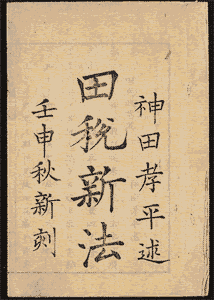 神田孝平述
田税新法
壬申秋新刻